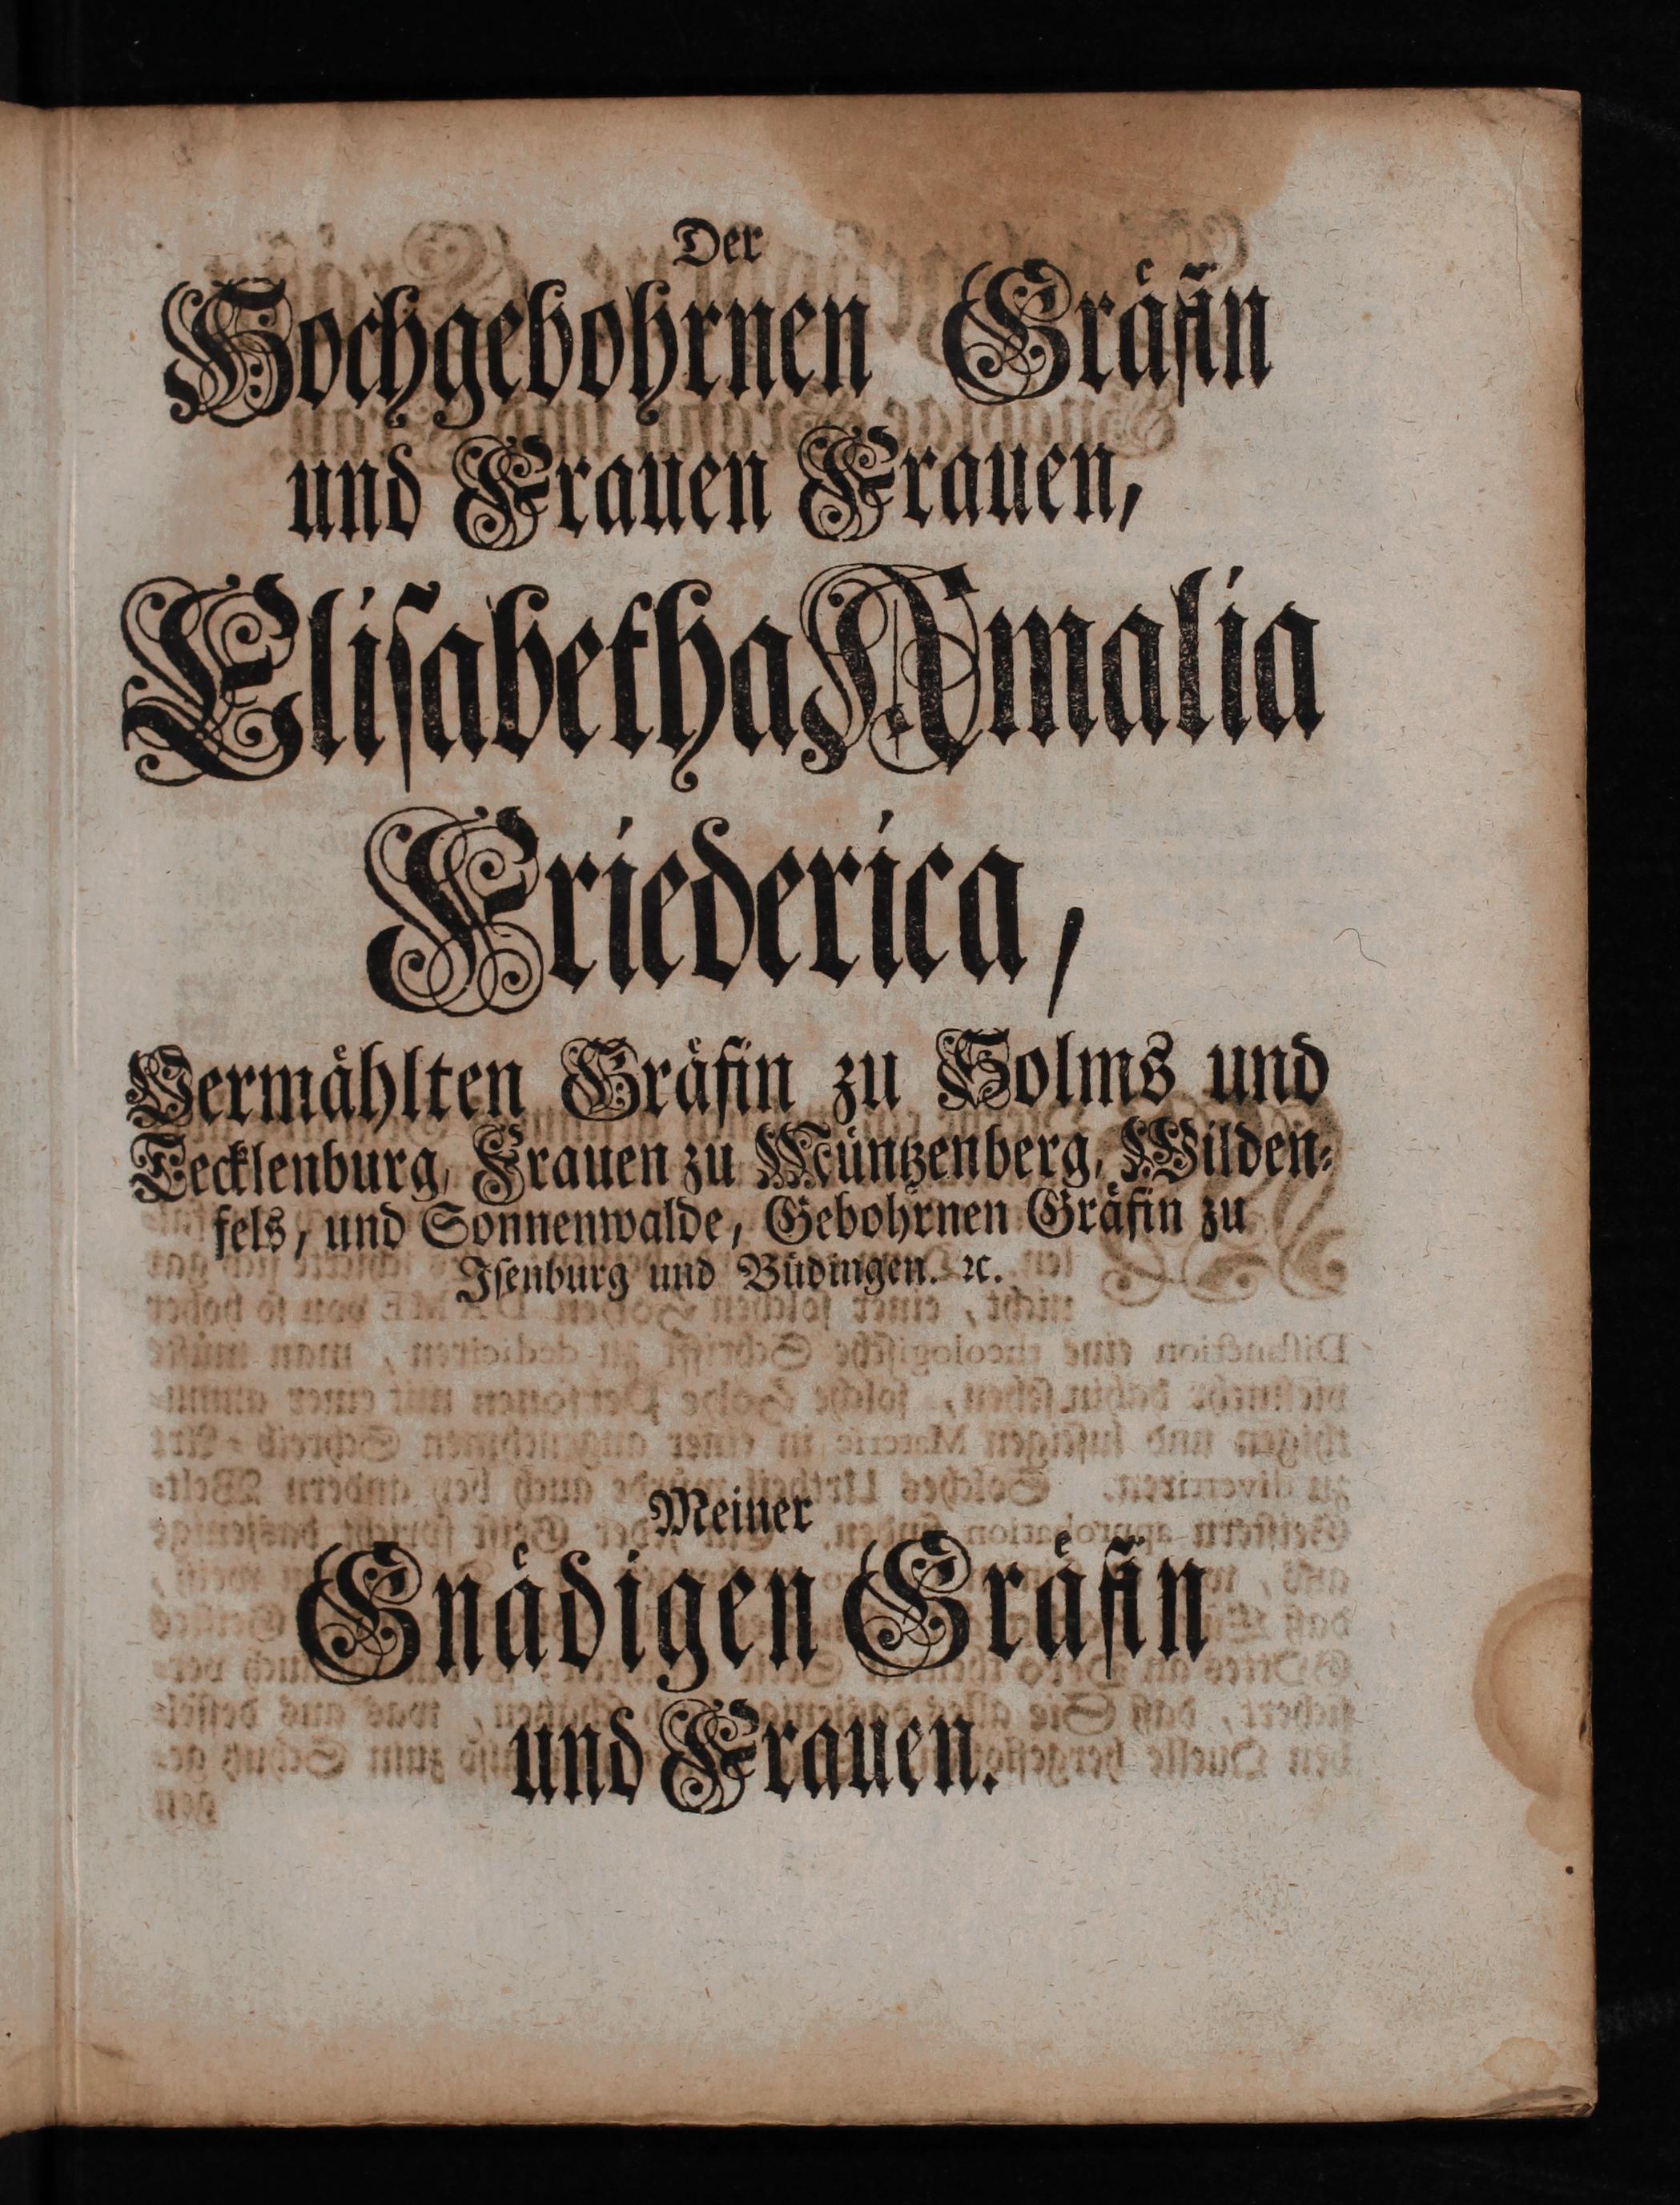 Der
Hochgebohrnen Gräfin
und Frauen Frauen,
Elisabetha Amalia
Friederica,
Vermählten Gräfin zu Solms und
Tecklenburg, Frauen zu Müntzenberg, Wilden-
fels, und Sonnenwalde, Gebohrnen Gräfin zu
Isenburg und Büdingen. ꝛc.
Meiner
Gnädigen Gräfin
und Frauen.